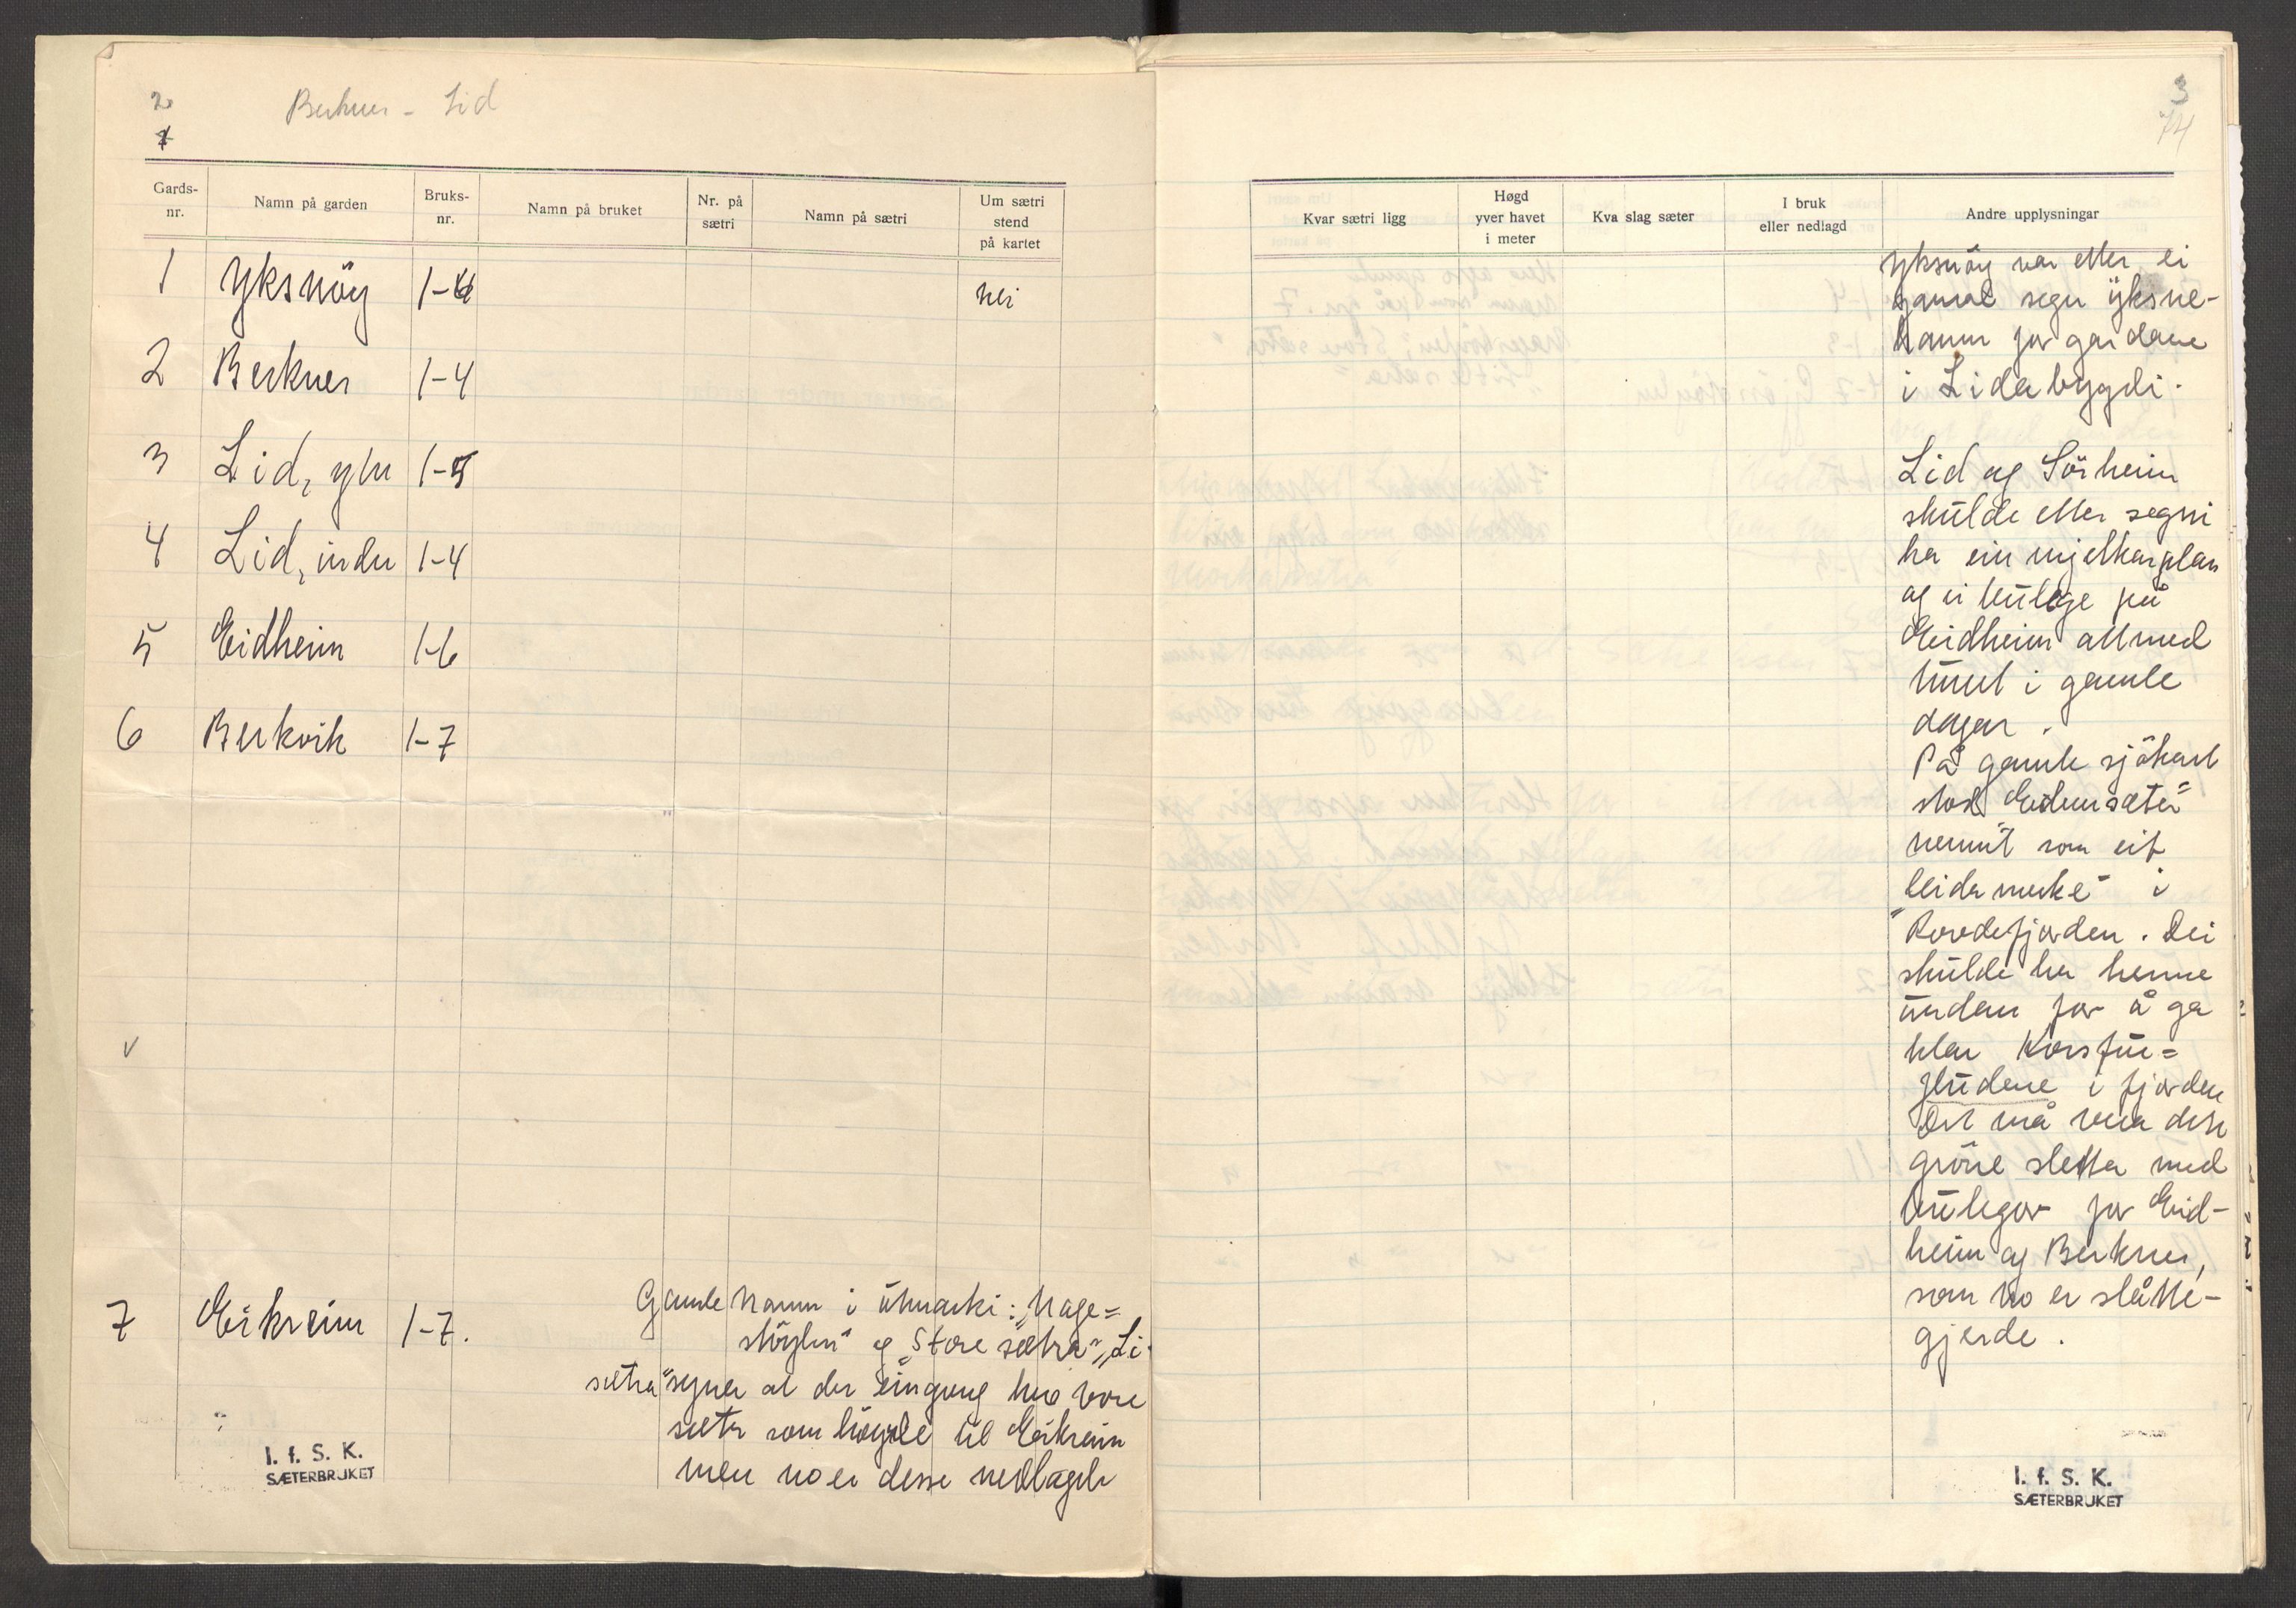 2
1
Berknes - Lid
Gards-
nr.
Namn på garden
Bruks-
nr.
Namn på bruket
Nr. på
sætri
Namn på sætri
Um sætri
stend
på kartet
1 Yksnöy 1-4 nei
2 Berknes 1-4
3 Lid, ytre 1-5
4 Lid, indre 1-4
5 Eidheim 1-6
6 Berkvik 1-7
v
7 Eikreim 1-7.
Gamle Namn i ŭtmarki: „Hage=
stöylen" og „Store sætra" „Li-
sætra" segner at der eingong her vore
sæter som höyrde til Eikreim
men no er desse nedlagde
I. f. S. K.
SÆTERBRUKET
3
14
Kvar sætri ligg
Høgd
yver havet
i meter
Kva slag sæter
I bruk
eller nedlagd
Andre upplysningar
Yksnöy var etter ei
gamal segn ŭksne-
hamn for gardane
i Lidabygdi.
Lid og Sörheim
skŭlde etter segni
ha ein mjelkarplan
og ei bŭlege på
Eidheim attmed
tŭnet i gamle
dagar.
På gamle sjökart
stod „Eidemsæter"
nemnt som eit
leidemerke i
Rovdefjorden. Dei
skŭlde ha henne
ŭndan for å ga
klar Korsfŭr=
flŭdene i fjorden
Det må vera den
gröne sletta med
bŭlegor for Eid-
heim og Berknes,
som no er slåtte-
gjerde.
I. f. S. K.
SÆTERBRUKET